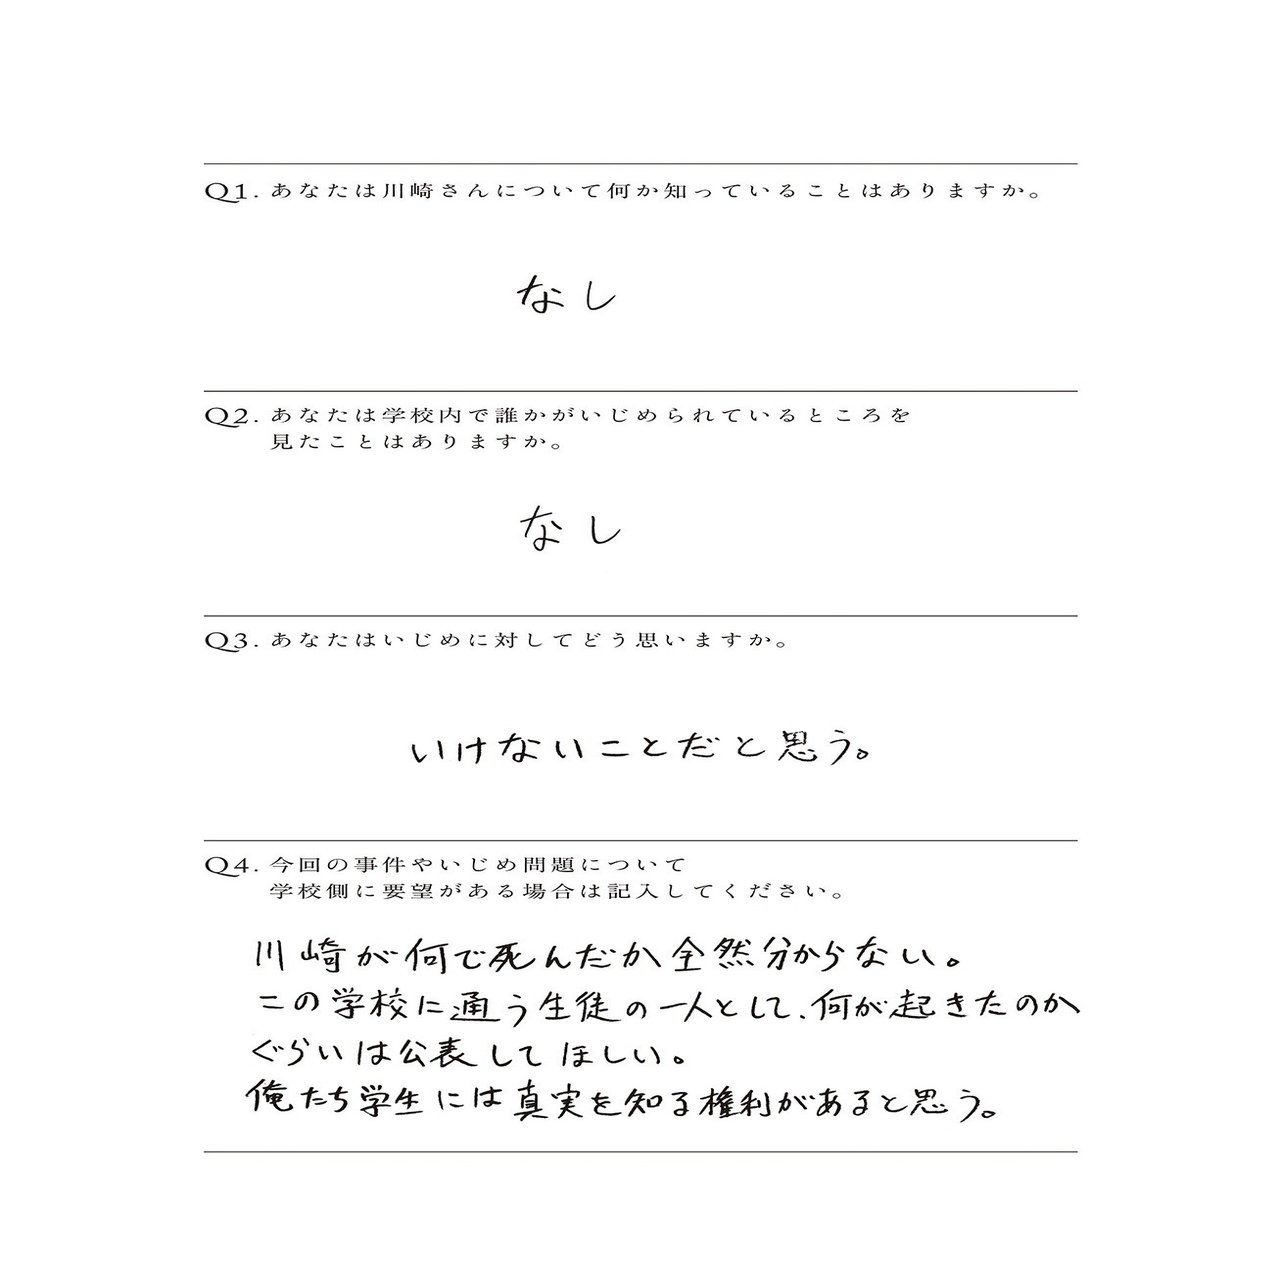 Q1. あなたは川崎さんについて何か知っていることはありますか。
なし
Q2. あなたは学校内で誰かがいじめられているところを
見たことはありますか。
なし
Q3. あなたはいじめに対してどう思いますか。
いけないことだと思う。
Q4. 今回の事件やいじめ問題について
学校側に要望がある場合は記入してください。
川崎が何で死んだか全然分からない。
この学校に通う生徒の一人として、何が起きたのか
ぐらいは公表してほしい。
俺たち学生には真実を知る権利があると思う。